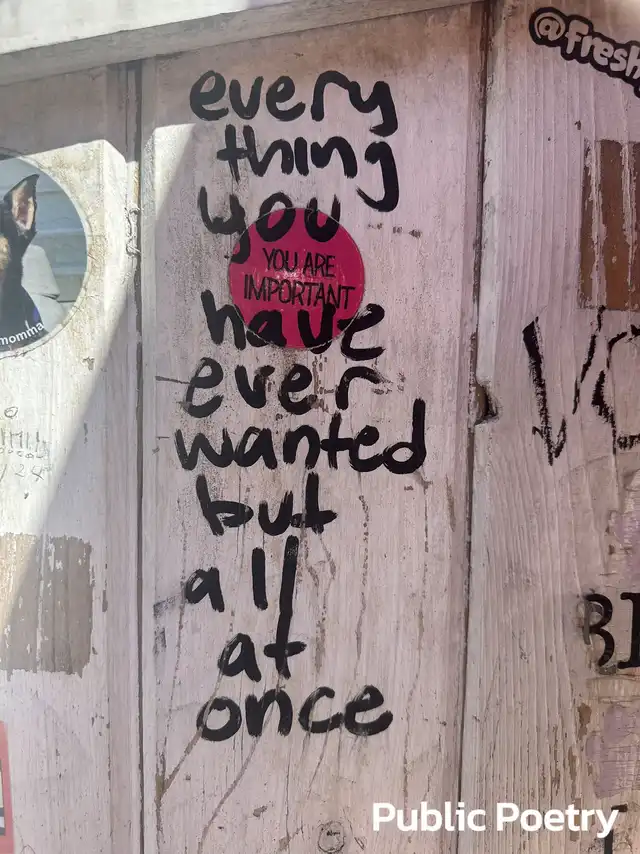 @fresh
every
thing
you
YOU ARE
IMPORTANT
have
ever
wanted
but
all
at
once
momma
Public Poetry